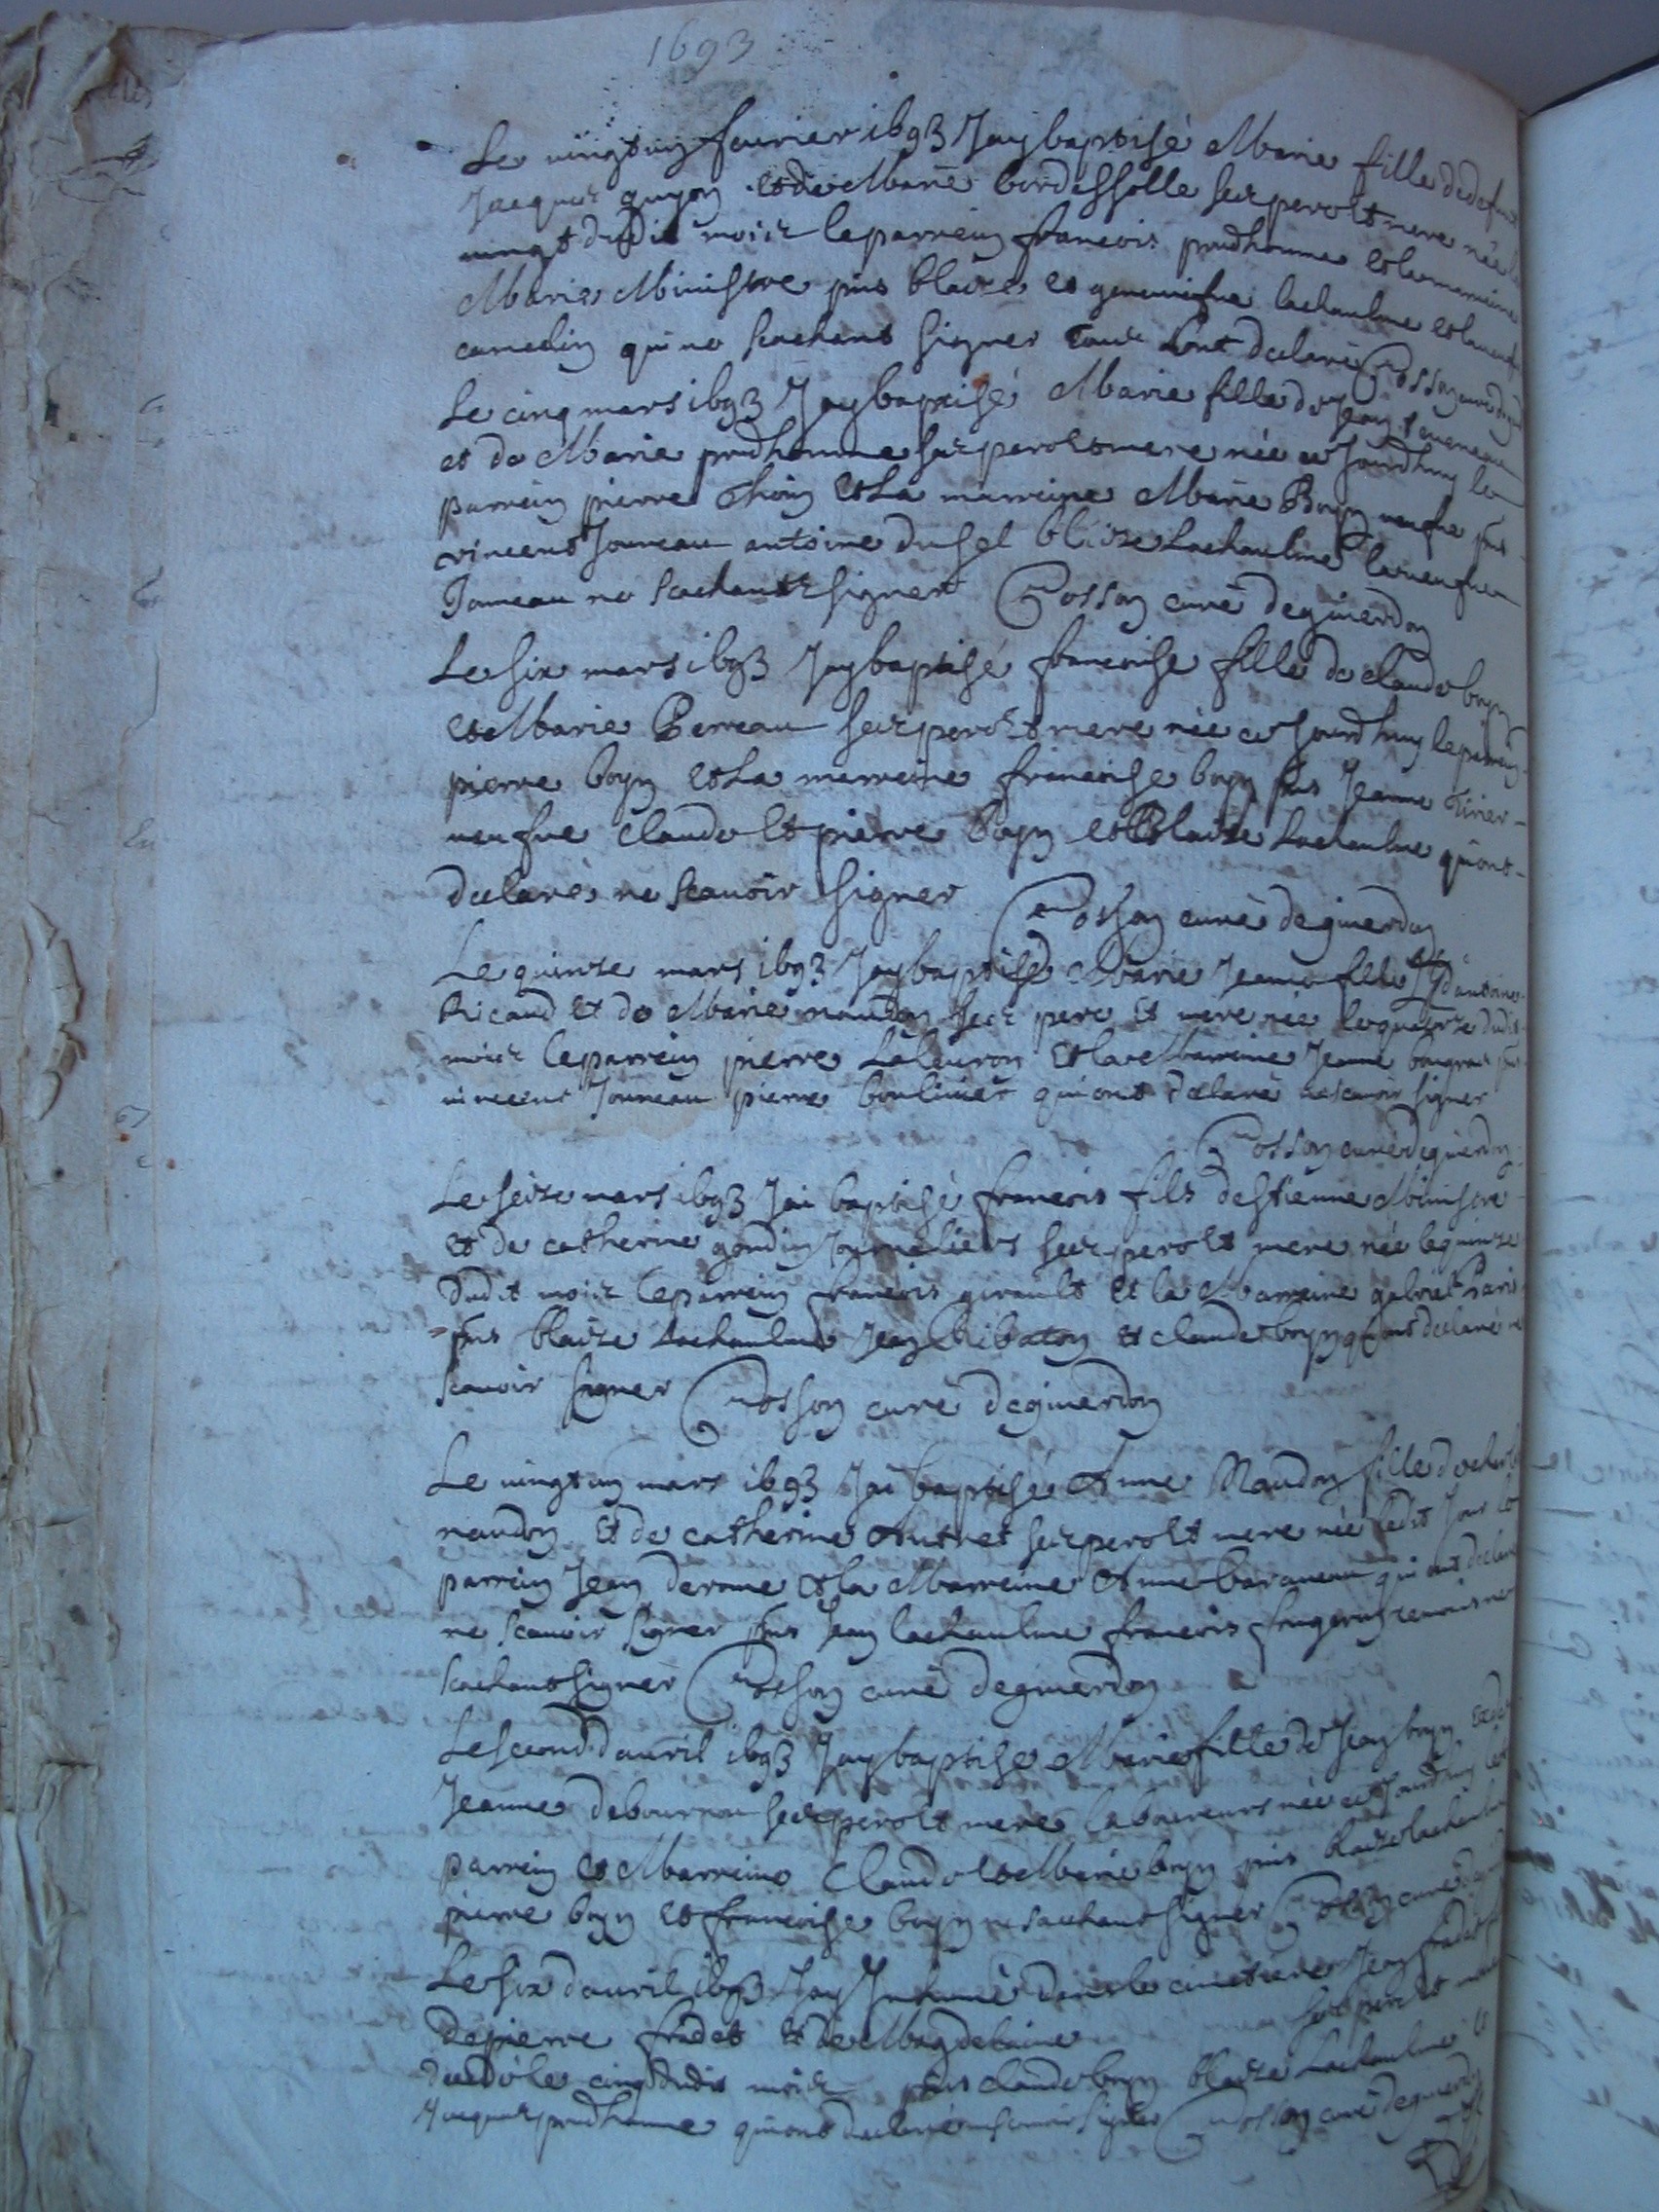 1693
Le vingt un feurier 1693 Jay baptisé Marie fille de defunt
Jacques guyon et de Marie bordessolle ses pere et mere née le
vingt dudit mois le parrein francois prudhomme et la marreine
Marie Ministre pns blaize et geneuiefue lachaulme et la veufue
camelin qui ne scachent signer come ont declaré Cosson curé
Le cinq mars 1693 Jay baptisé Marie fille de Jean
et de Marie prudhomme ses pere et mere née ce Jourdhuy le
parrein pierre Thoin et La marreine Marie Boyn veufue pns
vincent Joumeau antoine dusel blaize Lachaulme la veufue
Joumeau ne scachants signer Cosson curé deguerdon
Le six mars 1693 Jay baptisé francoise fille de claude boyn
et Marie Perreau ses pere et mere née ce Jourdhuy le parrein
pierre boyn et La marreine francoise boyn pns Jeanne
veufue Claude et pierre Boyn et Blaize Lachaulme qui ont
declarés ne scauoir signer Cosson curé deguerdon
Le quinze mars 1693 Jay baptisé Marie Jeanne fille dantoine
Ricaud et de Marie naudon ses pere et mere née le quatorze dudit
mois le parrein pierre Laleuron et la Marreine Jeanne pns
vincent Joumeau pierre boulinier qui ont declaré ne scauoir signer
Cosson curé deguerdon
Le seize mars 1693 Jai baptisé francois fils destienne Ministre
et de catherine gondin Journaliers ses pere et mere née le quinze
dudit mois le parrein francois girault et la Marreine gabriel Paris
pns blaize Lachaulme Jean Ribaton et claude boyn qui ont declaré ne
scauoir signer Cosson curé deguerdon
Le vingt un mars 1693 Jai baptisé Anne Naudon fille de
naudon et de catherine Autret ses pere et mere née ledit Jour le
parrein Jean derome et la Marreine Anne baraneau qui ont declaré
ne scauoir signer pns Jean lachaulme francois ne
scachant signer Cosson curé deguerdon
Le second dauril 1693 Jay baptisé Marie fille de Jean boyn et de
Jeanne debournou ses pere et mere laboureurs née ce Jourdhuy les
parrein et Marreine Claude et Marie boyn pns blaize lachaulme
pierre boyn et francoise boyn ne scachant signer Cosson curé
Le six dauril 1693 Jay Inhumé dans le cimetiere Jean fradet fils
de pierre fradet et de Magdelaine ses pere et mere
decedé le cinq dudit mois pns claude boyn blaize Lachaulme et
Jacques prudhomme qui ont declaré ne scauoir signer Cosson curé deguerdon